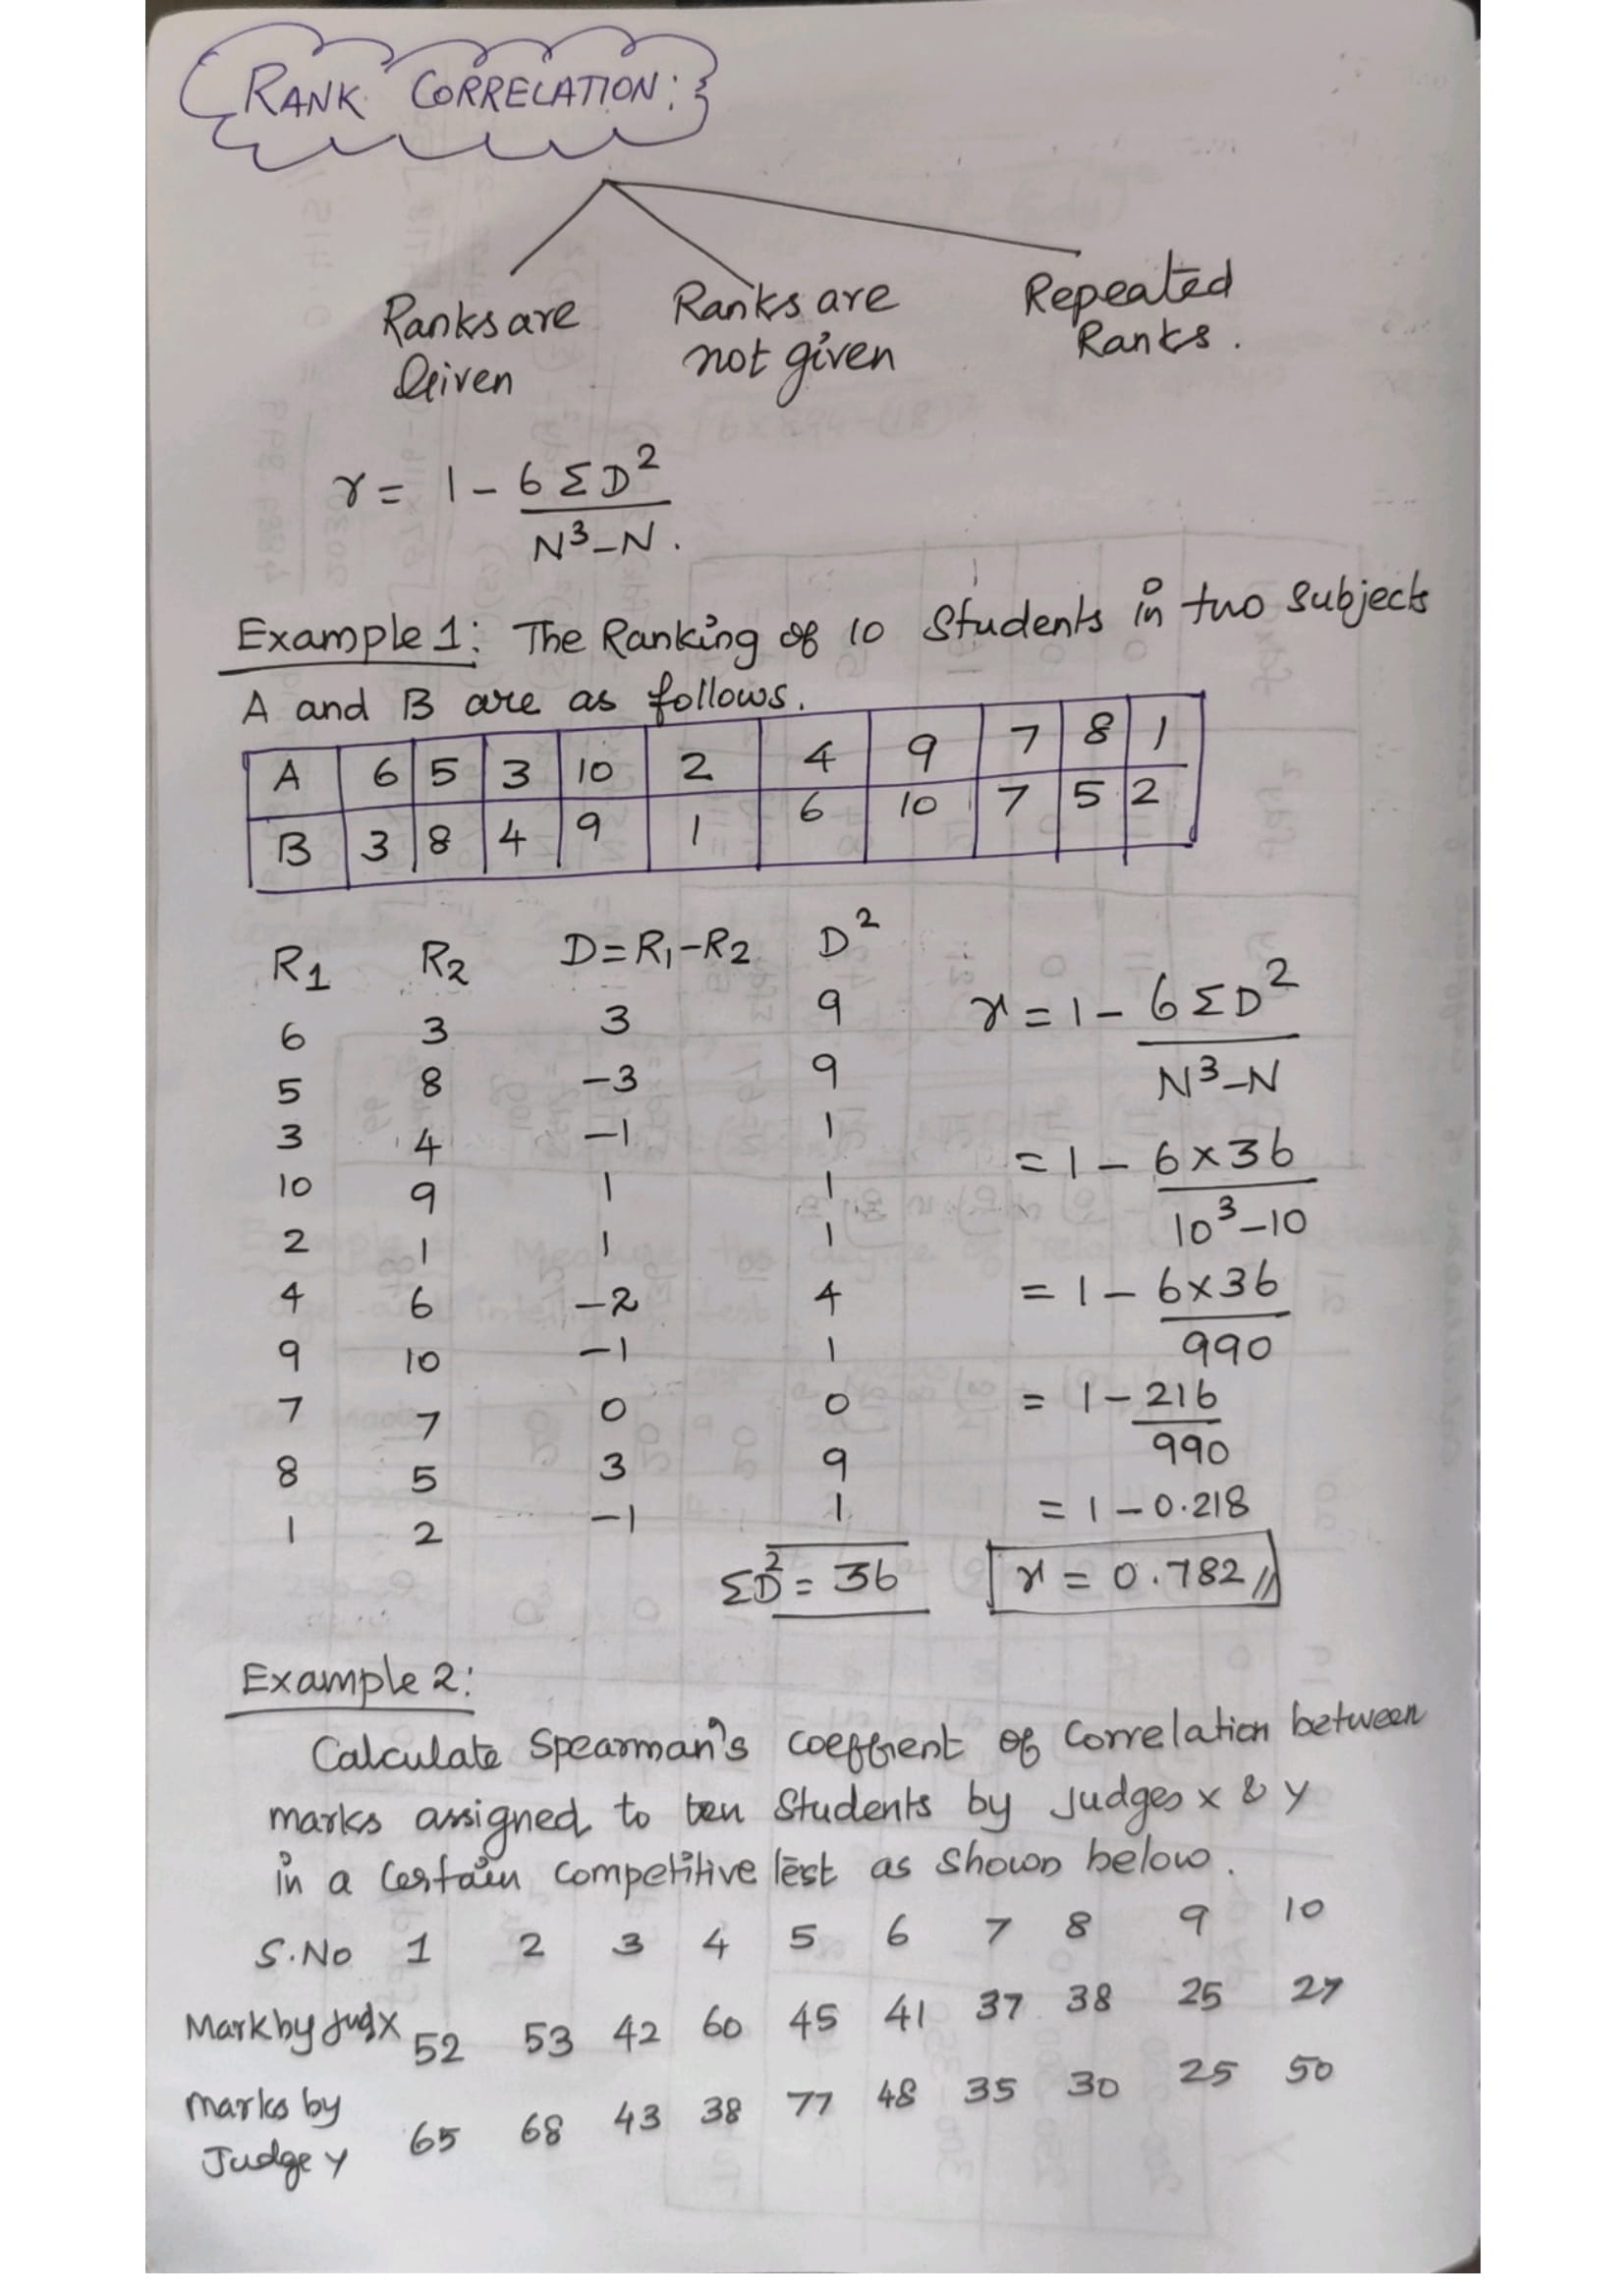 RANK CORRELATION:
Ranks are Given
Ranks are not given
Repeated Ranks.
r = 1 - 6ΣD² / N³-N.
Example 1: The Ranking of 10 Students in two Subjects
A and B are as follows.
A 6 5 3 10 2 4 9 7 8 1
B 3 8 4 9 1 6 10 7 5 2
R1 R2 D=R1-R2 D²
6 3 3 9
5 8 -3 9
3 4 -1 1
10 9 1 1
2 1 1 1
4 6 -2 4
9 10 -1 1
7 7 0 0
8 5 3 9
1 2 -1 1
ΣD² = 36
r = 1 - 6ΣD² / N³-N
= 1 - 6×36 / 10³-10
= 1 - 6×36 / 990
= 1 - 216 / 990
= 1 - 0.218
r = 0.782 //
Example 2:
Calculate Spearman's coeffient of Correlation between
marks assigned to ten Students by Judges x & y
in a Certain Competitive test as Shown below.
S.No 1 2 3 4 5 6 7 8 9 10
Mark by Jud X 52 53 42 60 45 41 37 38 25 27
Marks by
Judge y 65 68 43 38 77 48 35 30 25 50